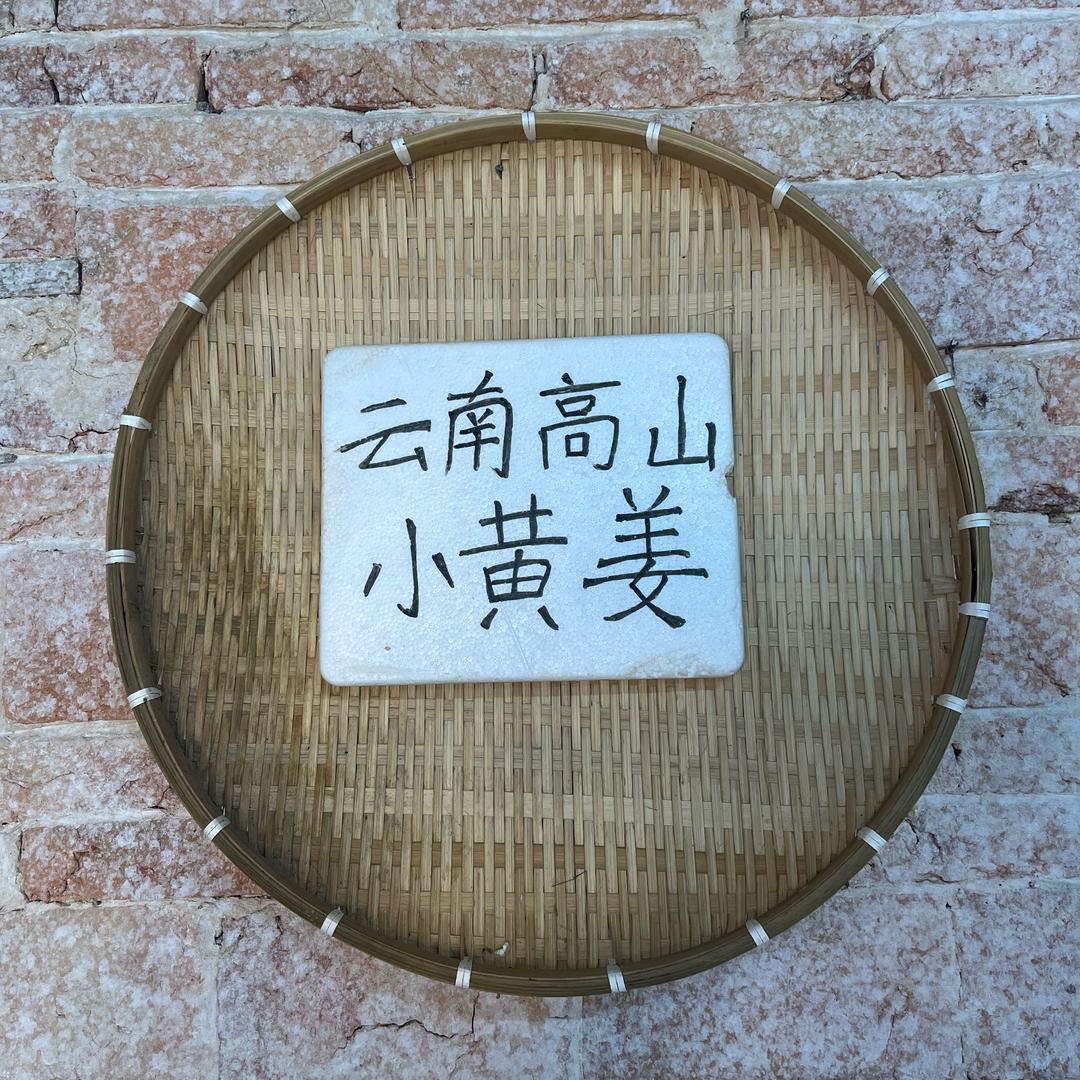 云南高山
小黄姜